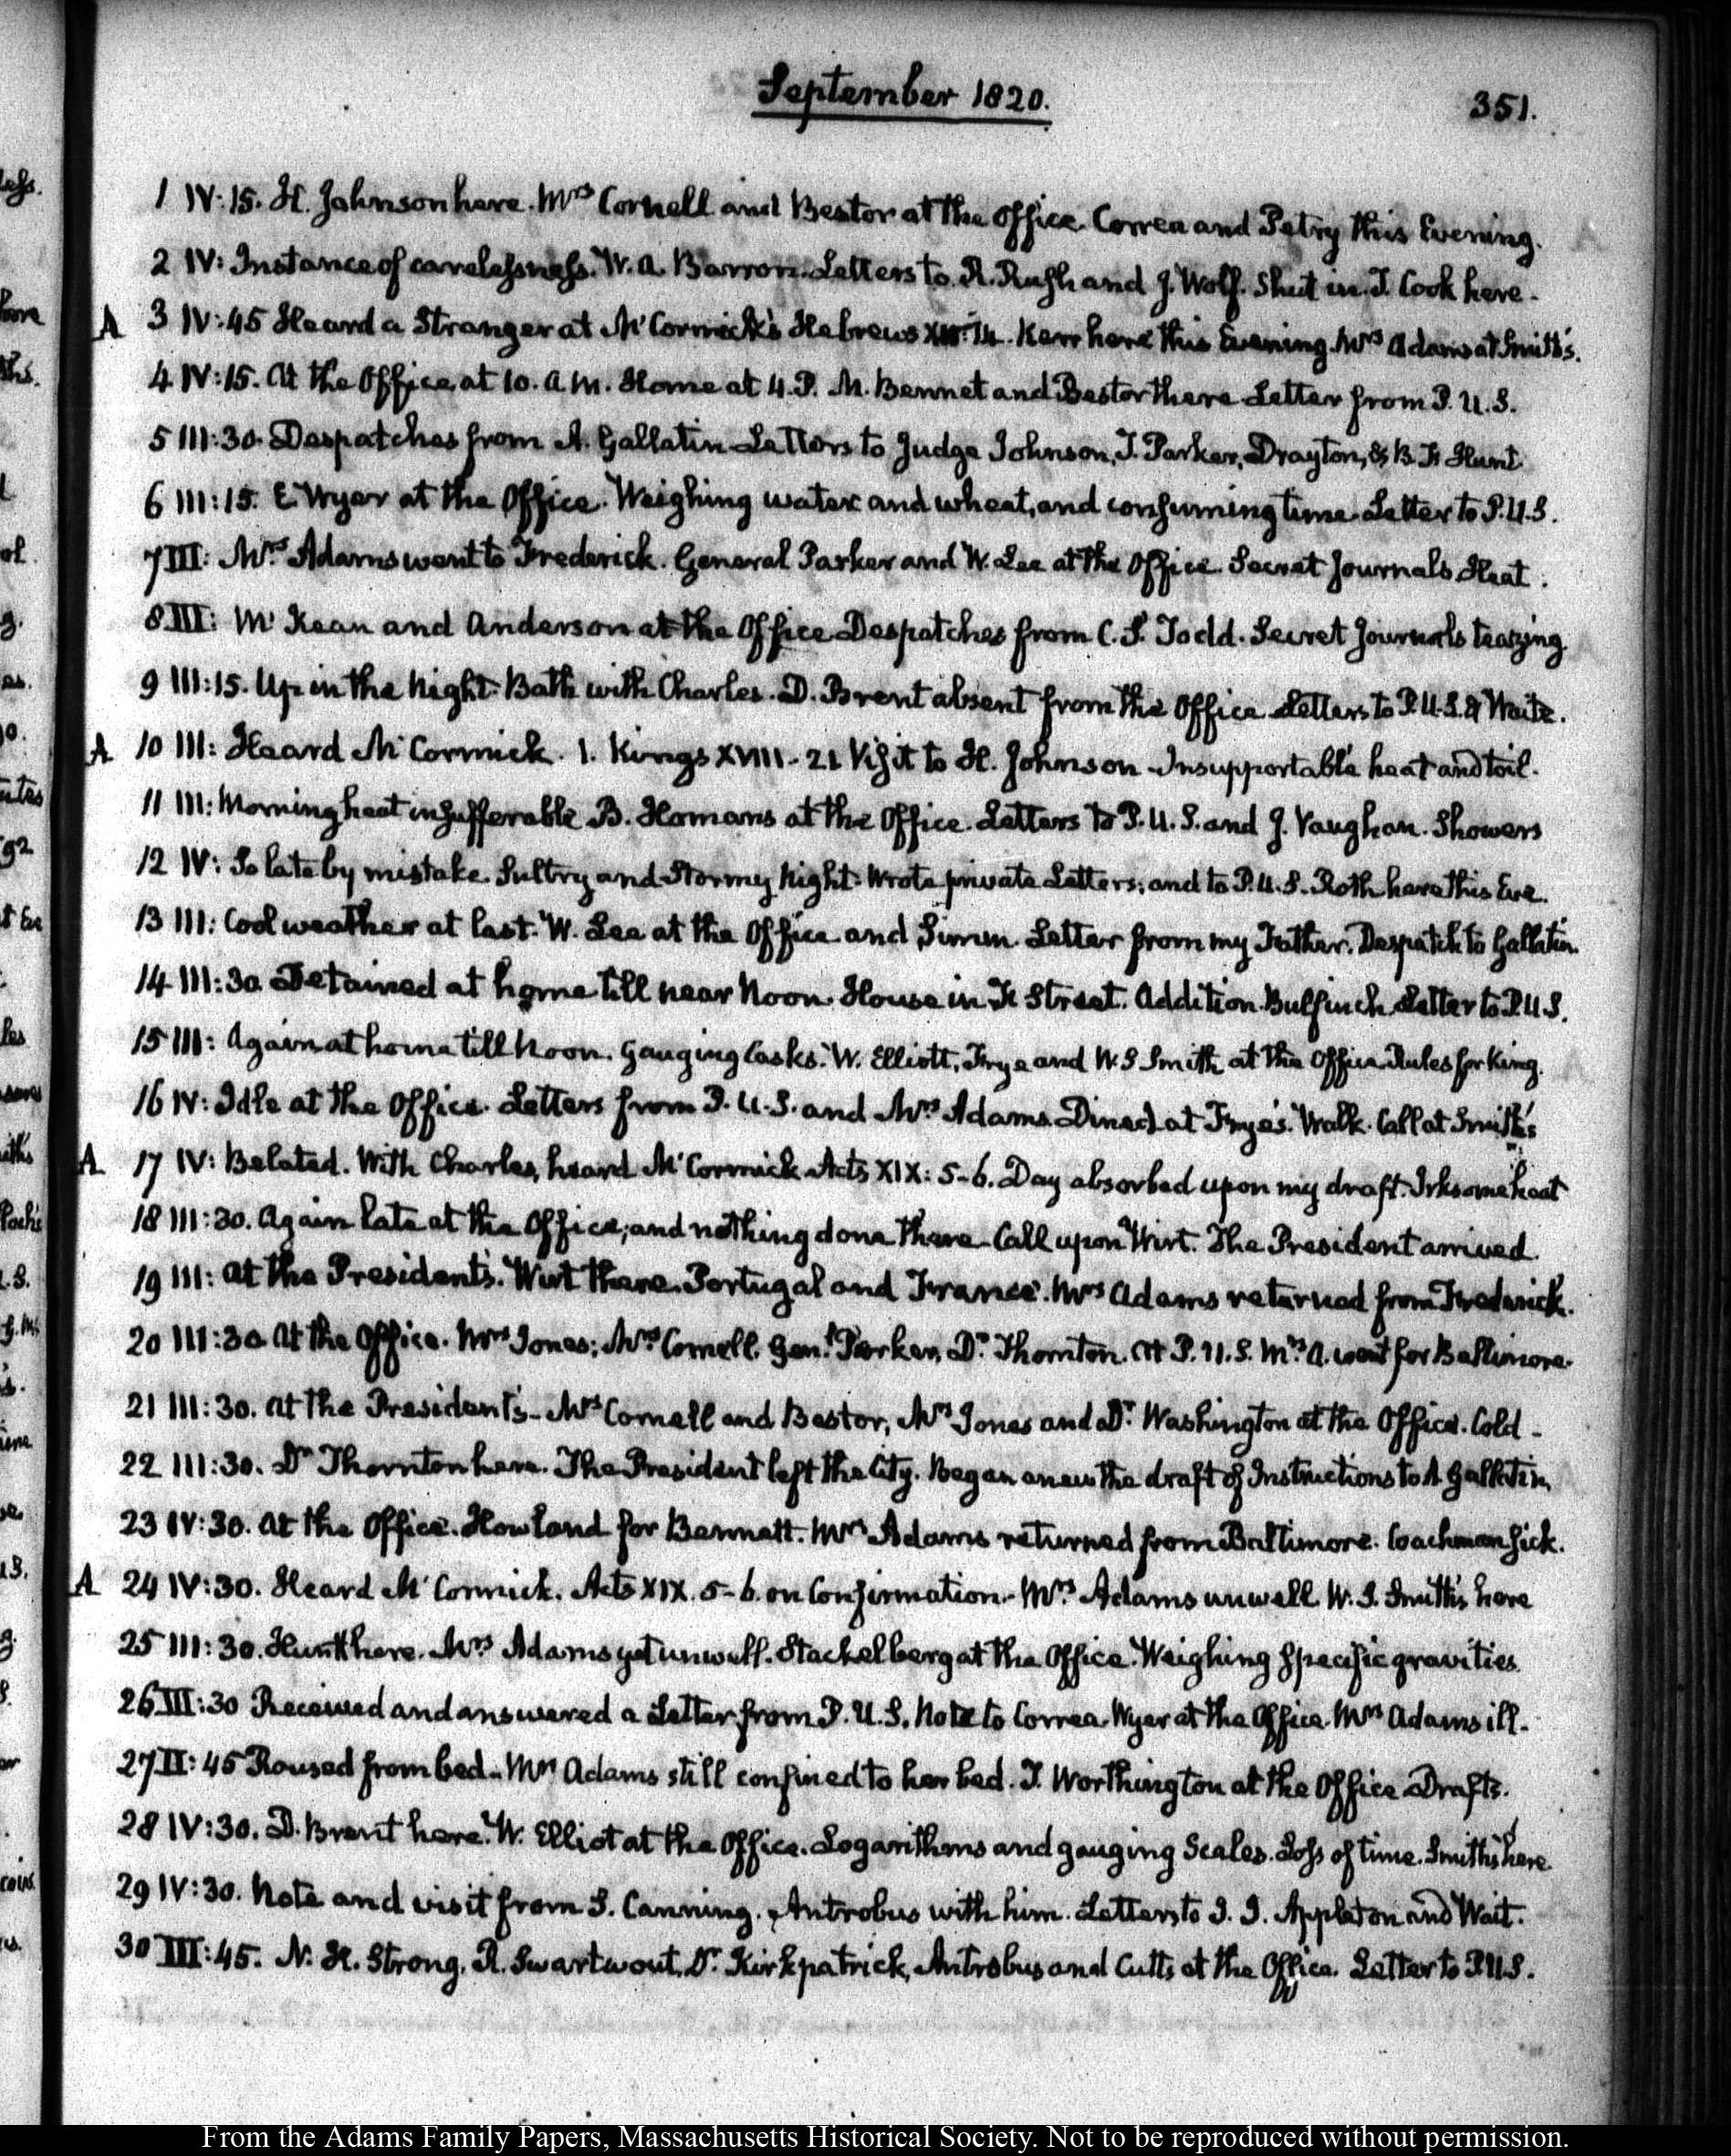 September 1820.
351.
1 IV:15. H. Johnson here. Mrs Cornell and Bestor at the Office. Correa and Petry this Evening.
2 IV: Instance of carelessness. W. A. Barron. Letters to R. Rush and J. Wolf. Shut in. T. Cook here.
A 3 IV:45 Heard a Stranger at McCormick's Hebrews 14. Kerr here this Evening. Mrs Adams at Smith's.
4 IV:15. At the Office, at 10. A.M. Home at 4. P. M. Bennet and Bestor there Letter from P. U. S.
5 III:30. Despatches from A. Gallatin Letters to Judge Johnson, T. Parker, Drayton, & B. F. Hunt.
6 III:15. E. Wyer at the Office. Weighing water and wheat, and consuming time. Letter to P.U.S.
7 III: Mrs Adams went to Frederick. General Parker and W. Lee at the Office. Secret Journals Heat.
8 III: McKean and Anderson at the Office Despatches from C. S. Todd. Secret Journals teazing.
9 III:15. Up in the Night. Bath with Charles. D. Brent absent from the Office Letters to P.U.S. & Waite.
A 10 III: Heard McCormick. 1. Kings XVIII. 21 Visit to H. Johnson. Insupportable heat and toil.
11 III: Morning heat insufferable B. Homans at the Office. Letters to P. U. S. and J. Vaughan. Showers
12 IV: So late by mistake. Sultry and Stormy Night. Wrote private Letters; and to P.U.S. Roth here this Eve.
13 III: Cool weather at last. W. Lee at the Office and Simm. Letter from my Father. Despatch to Gallatin.
14 III:30. Detained at home till near Noon. House in F. Street. Addition. Bulfinch. Letter to P.U.S.
15 III: Again at home till Noon. Gauging Casks. W. Elliott, Frye and W. S Smith at the Office. Rules for King.
16 IV: Idle at the Office. Letters from P. U. S. and Mrs Adams. Dined at Frye's. Walk. Call at Smith's
A 17 IV: Belated. With Charles, heard McCormick Acts XIX: 5-6. Day absorbed upon my draft. Irksome heat
18 III:30. Again late at the Office, and nothing done there. Call upon Wirt. The President arrived.
19 III: At the President's. Wirt there. Portugal and France. Mrs Adams returned from Frederick.
20 III:30 At the Office. Mrs Jones; Mrs Cornell, Genl Parker, Dr Thornton. At P. U. S. Mrs A. went for Baltimore.
21 III:30. At the President's. Mrs Cornell and Bestor, Mrs Jones and Dr Washington at the Office. Cold.
22 III:30. Dr Thornton here. The President left the City. Began anew the draft of Instructions to A. Gallatin.
23 IV:30. At the Office. Howland for Bennett. Mrs Adams returned from Baltimore. Coachman sick.
A 24 IV:30. Heard McCormick. Acts XIX. 5-6. on Confirmation. Mrs Adams unwell. W. S. Smith's here
25 III:30. Hunt here. Mrs Adams yet unwell. Stackelberg at the Office. Weighing Specific gravities.
26 III:30 Received and answered a Letter from P. U. S. Note to Correa. Wyer at the Office. Mrs Adams ill.
27 II:45 Roused from bed. Mrs Adams still confined to her bed. T. Worthington at the Office. Drafts.
28 IV:30. D. Brent here. W. Elliot at the Office. Logarithms and gauging Scales. Loss of time. Smith's here.
29 IV:30. Note and visit from S. Canning. Antrobus with him. Letters to J. J. Appleton and Wait.
30 III:45. N. H. Strong, R. Swartwout, Dr Kirkpatrick, Antrobus and Cutts at the Office. Letter to P.U.S.
From the Adams Family Papers, Massachusetts Historical Society. Not to be reproduced without permission.